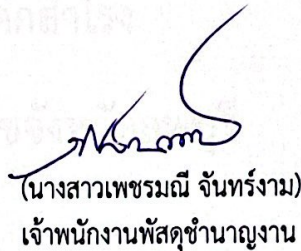 (นางสาวเพชรมณี จันทร์งาม)
เจ้าพนักงานพัสดุชำนาญงาน